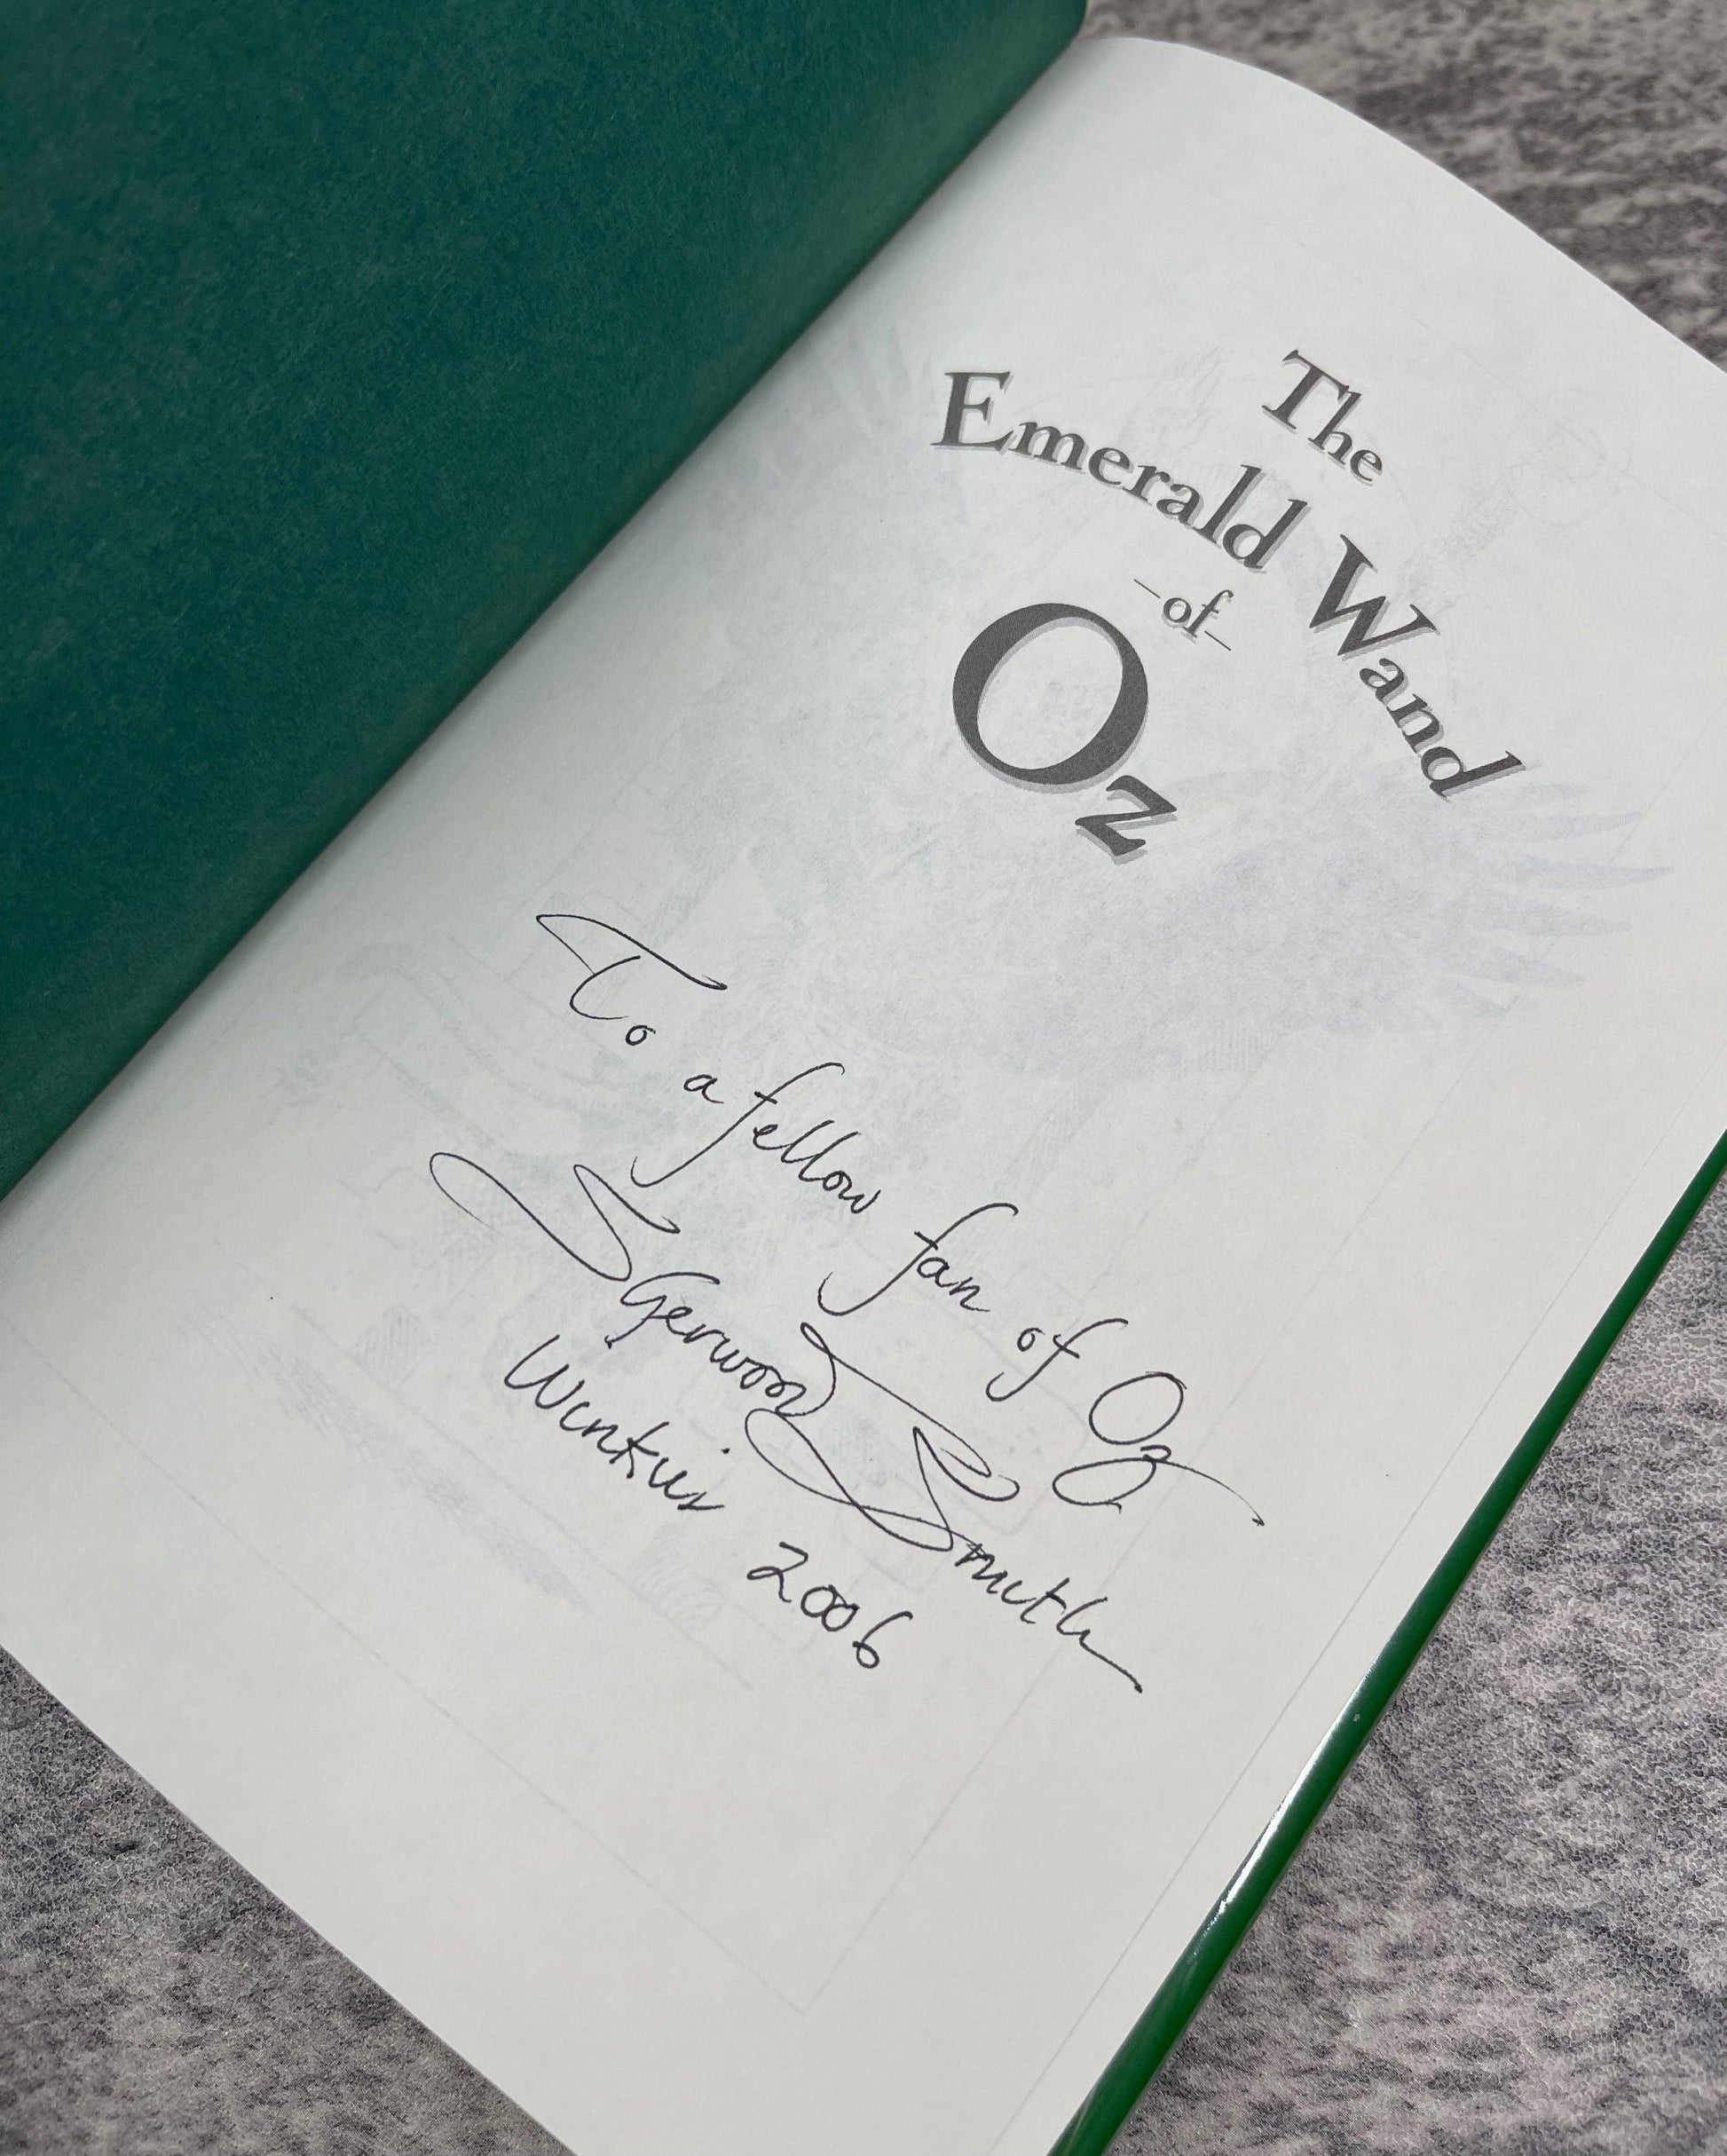 The
Emerald Wand
–of–
Oz
To a fellow fan of Oz
Sherwood Smith
Winkies 2006